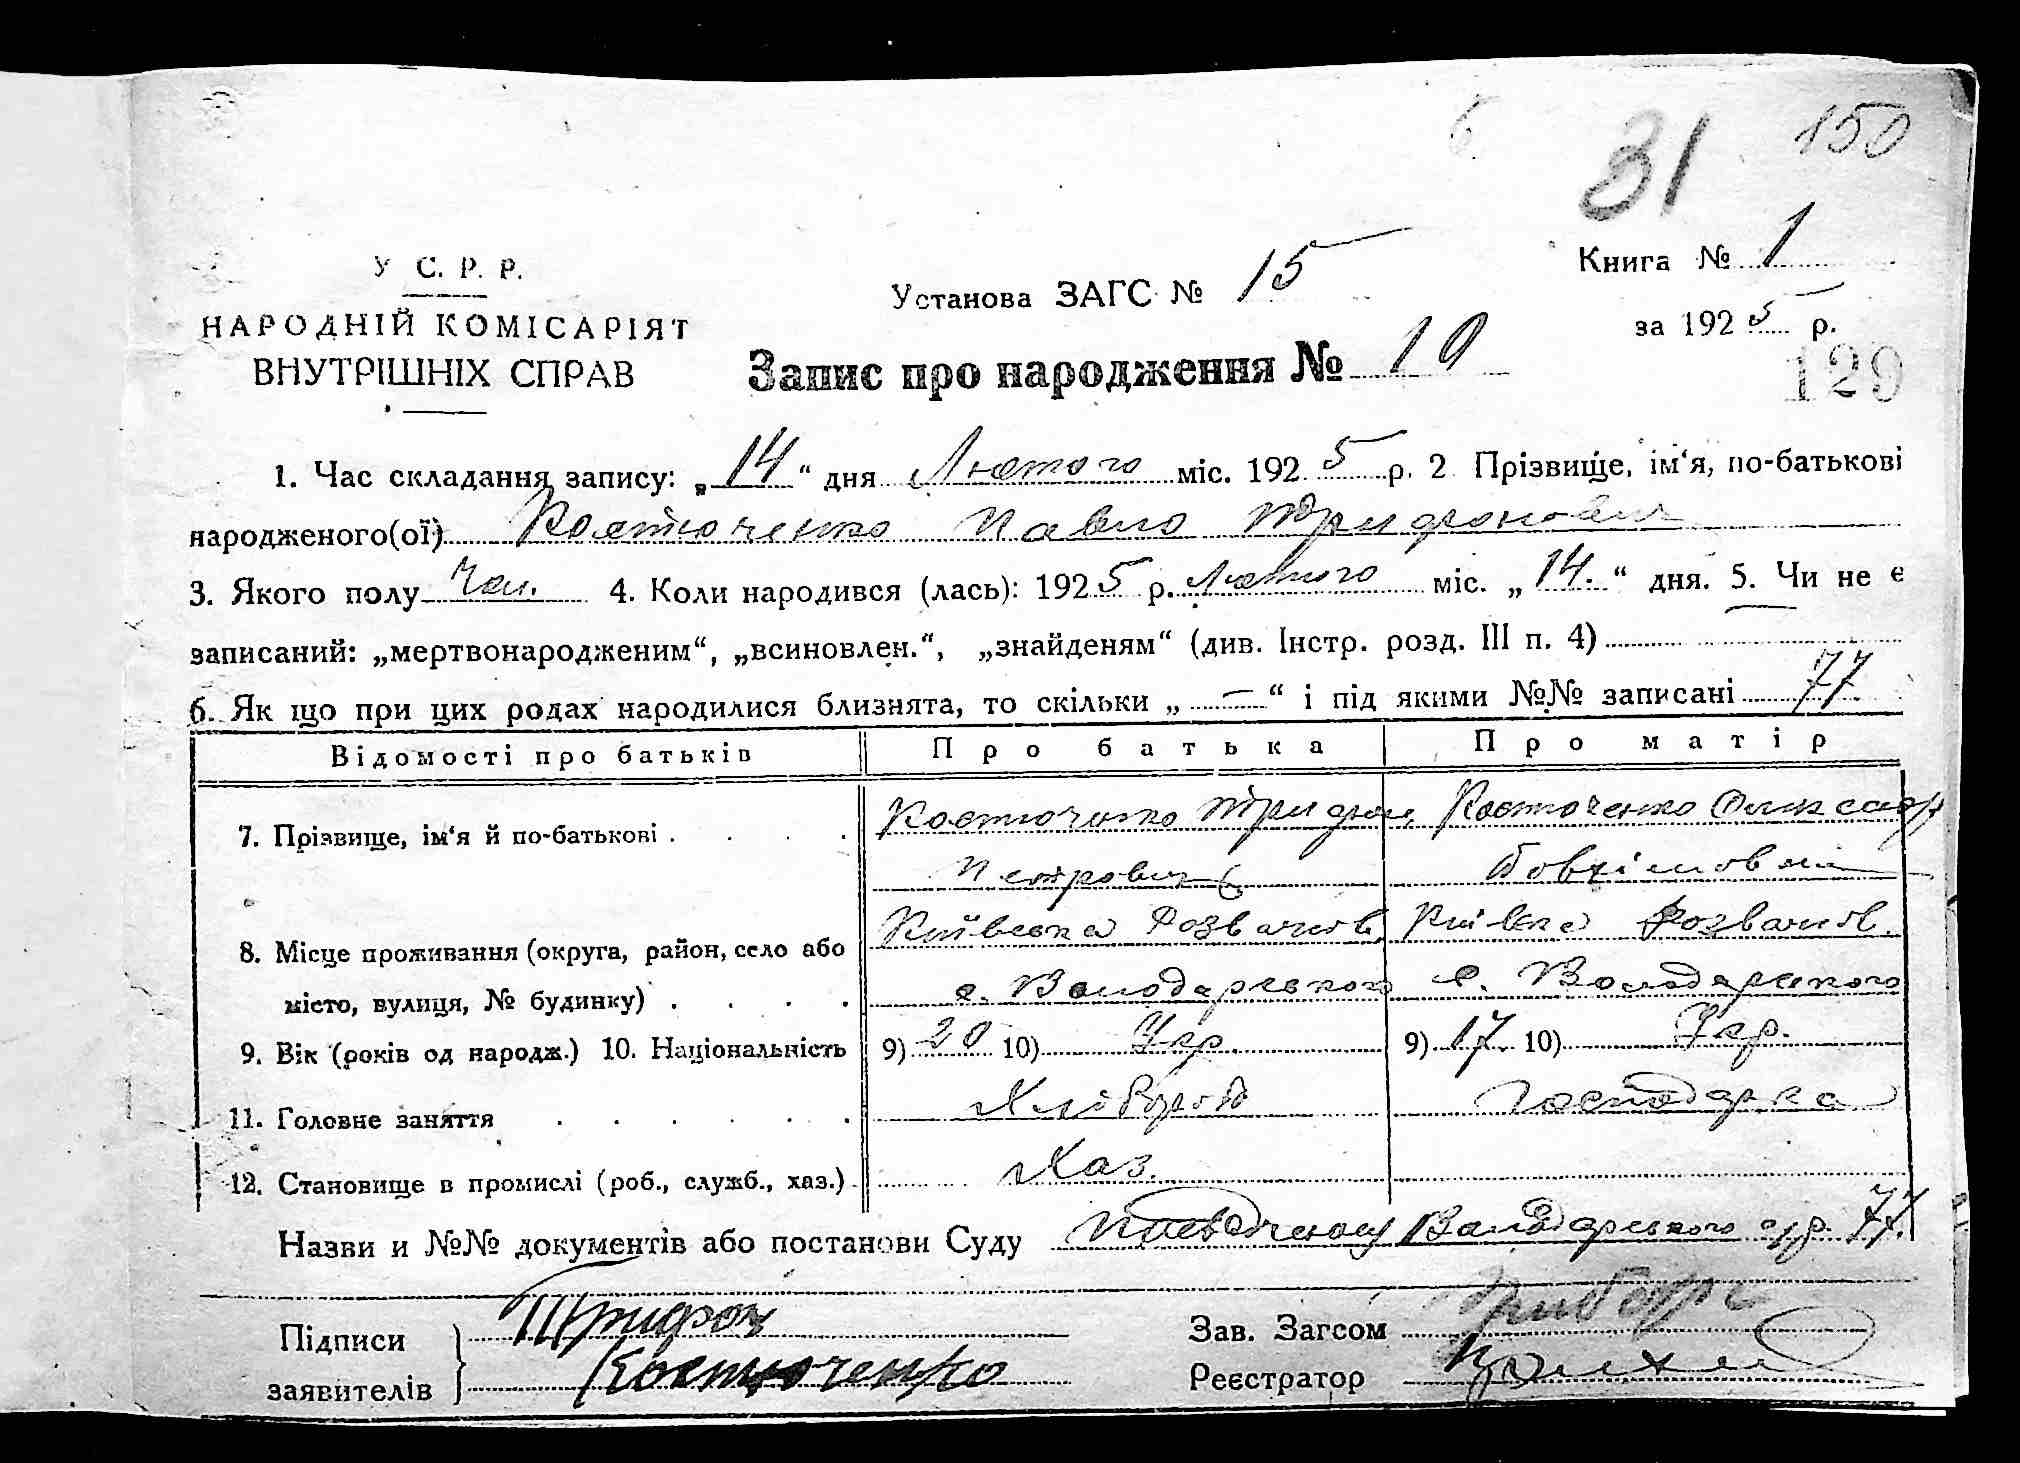 31 150
У С. Р. Р.
НАРОДНІЙ КОМІСАРІЯТ
ВНУТРІШНІХ СПРАВ
Установа ЗАГС № 15
Книга № 1
за 1925 р.
Запис про народження № 19
129
1. Час складання запису: „14“ дня Лютого міс. 1925 р. 2 Прізвище, ім‘я, по-батькові
народженого(ої) Костюченко Павло Трифонович
3. Якого полу Чол. 4. Коли народився (лась): 1925 р. Лютого міс. „14.“ дня. 5. Чи не є
записаний: „мертвонародженим“, „всиновлен.“, „знайденям“ (див. Інстр. розд. III п. 4)
6. Як що при цих родах народилися близнята, то скільки „—“ і під якими №№ записані 77
Відомості про батьків Про батька Про матір
7. Прізвище, ім‘я й по-батькові . . . . Костюченко Трифон Костюченко Олександр
Петрович
8. Місце проживання (округа, район, село або Київська Розважів. Київска Розважів.
місто, вулиця, № будинку) . . . . с. Володарського с. Володарського
9. Вік (років од народж.) 10. Національність 9) 20 10) Укр. 9) 17 10) Укр.
11. Головне заняття . . . . . . Хлібороб Господарка
12. Становище в промислі (роб., служб., хаз.) Хаз.
Назви и №№ документів або постанови Суду Володарського 77
Підписи Трифон Зав. Загсом
заявителів Костюченко Реєстратор